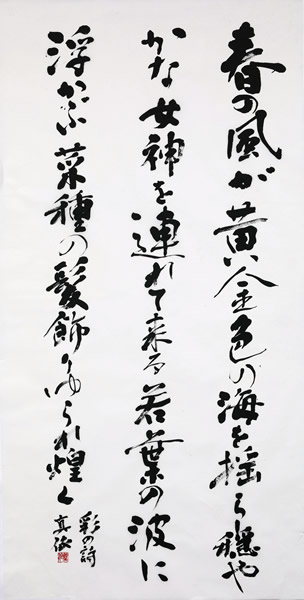 春の風が黄金色の海を揺らし穏や
かな女神を連れて来る若葉の波に
浮かぶ菜種の髪飾りゆられ煌く
彩の詩
真